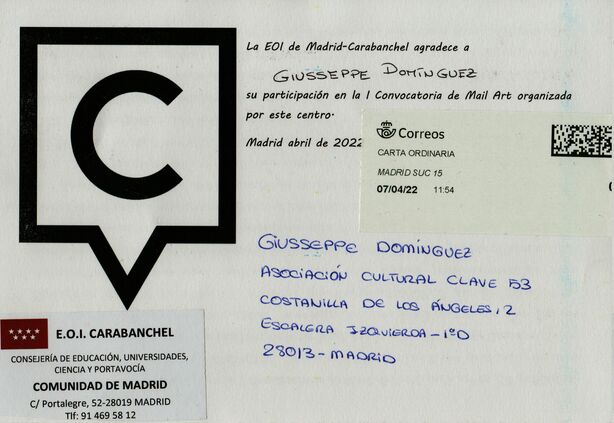 C
La EOI de Madrid-Carabanchel agradece a
GIUSSEPPE DOMÍNGUEZ
su participación en la I Convocatoria de Mail Art organizada
por este centro.
Madrid abril de 2022
Correos
CARTA ORDINARIA
MADRID SUC 15
07/04/22 11:54
GIUSSEPPE DOMÍNGUEZ
ASOCIACIÓN CULTURAL CLAVE 53
COSTANILLA DE LOS ÁNGELES, 2
ESCALERA IZQUIERDA - 1ºD
28013 - MADRID
E.O.I. CARABANCHEL
CONSEJERÍA DE EDUCACIÓN, UNIVERSIDADES,
CIENCIA Y PORTAVOCÍA
COMUNIDAD DE MADRID
C/ Portalegre, 52-28019 MADRID
Tlf: 91 469 58 12